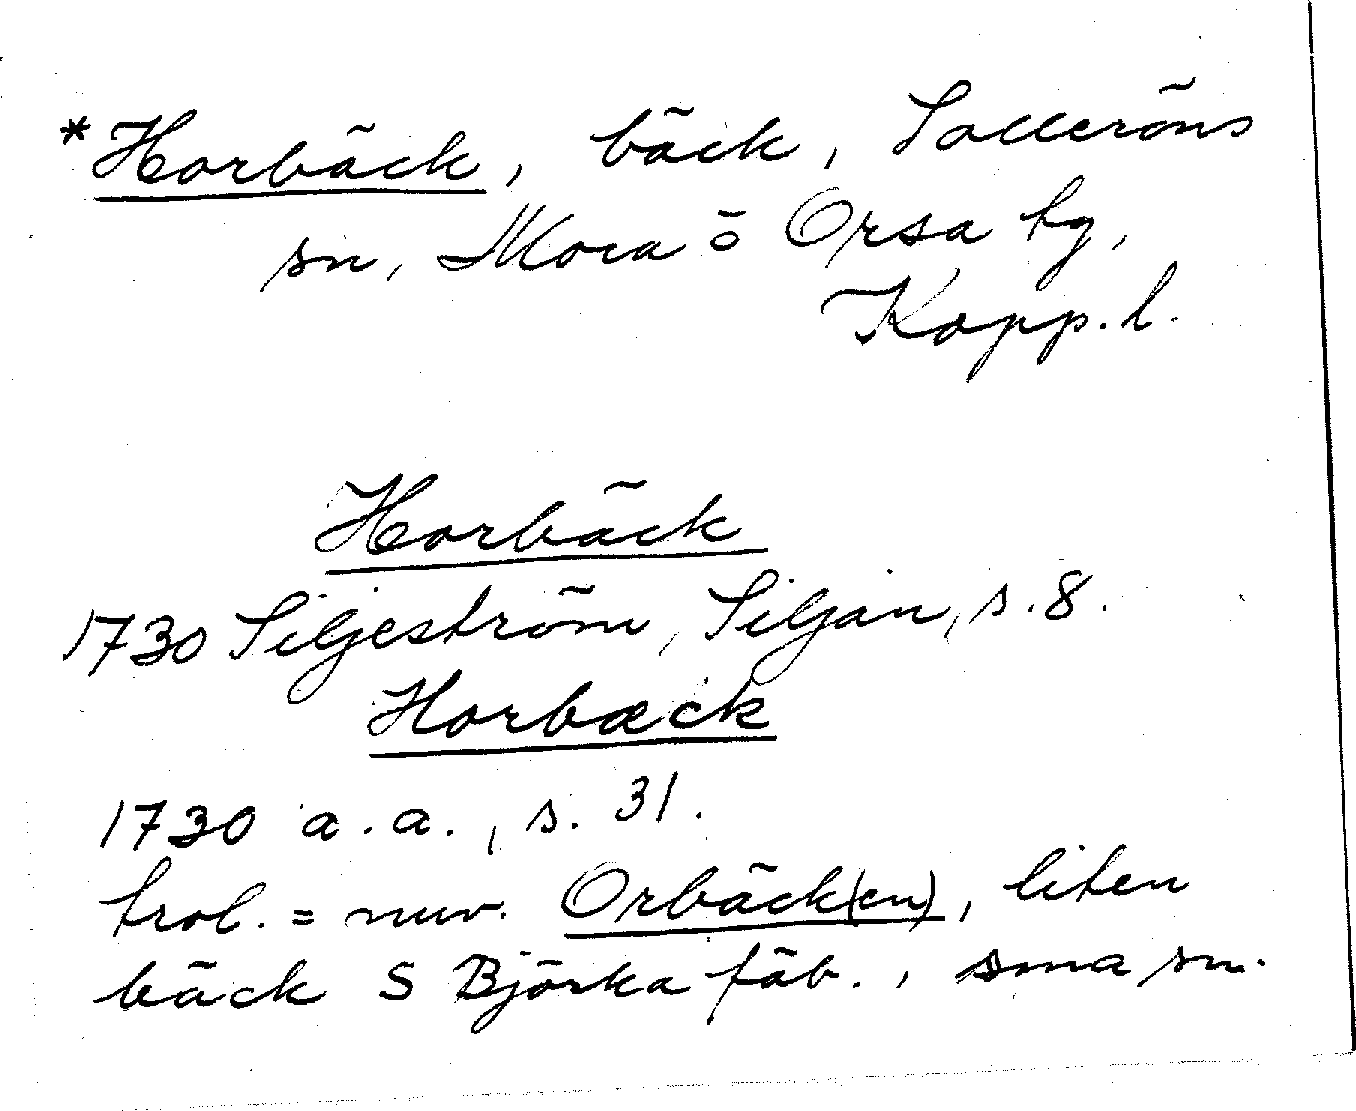 *Horbäck, bäck, Solleröns
sn, Mora o Orsa tg,
Kopp. l.
Horbäck
1730 Siljeström, Siljan, s. 8.
Horbæck
1730 a.a., s. 31.
trol. = nuv. Orbäck(en), liten
bäck S Björka fäb., sma sn.